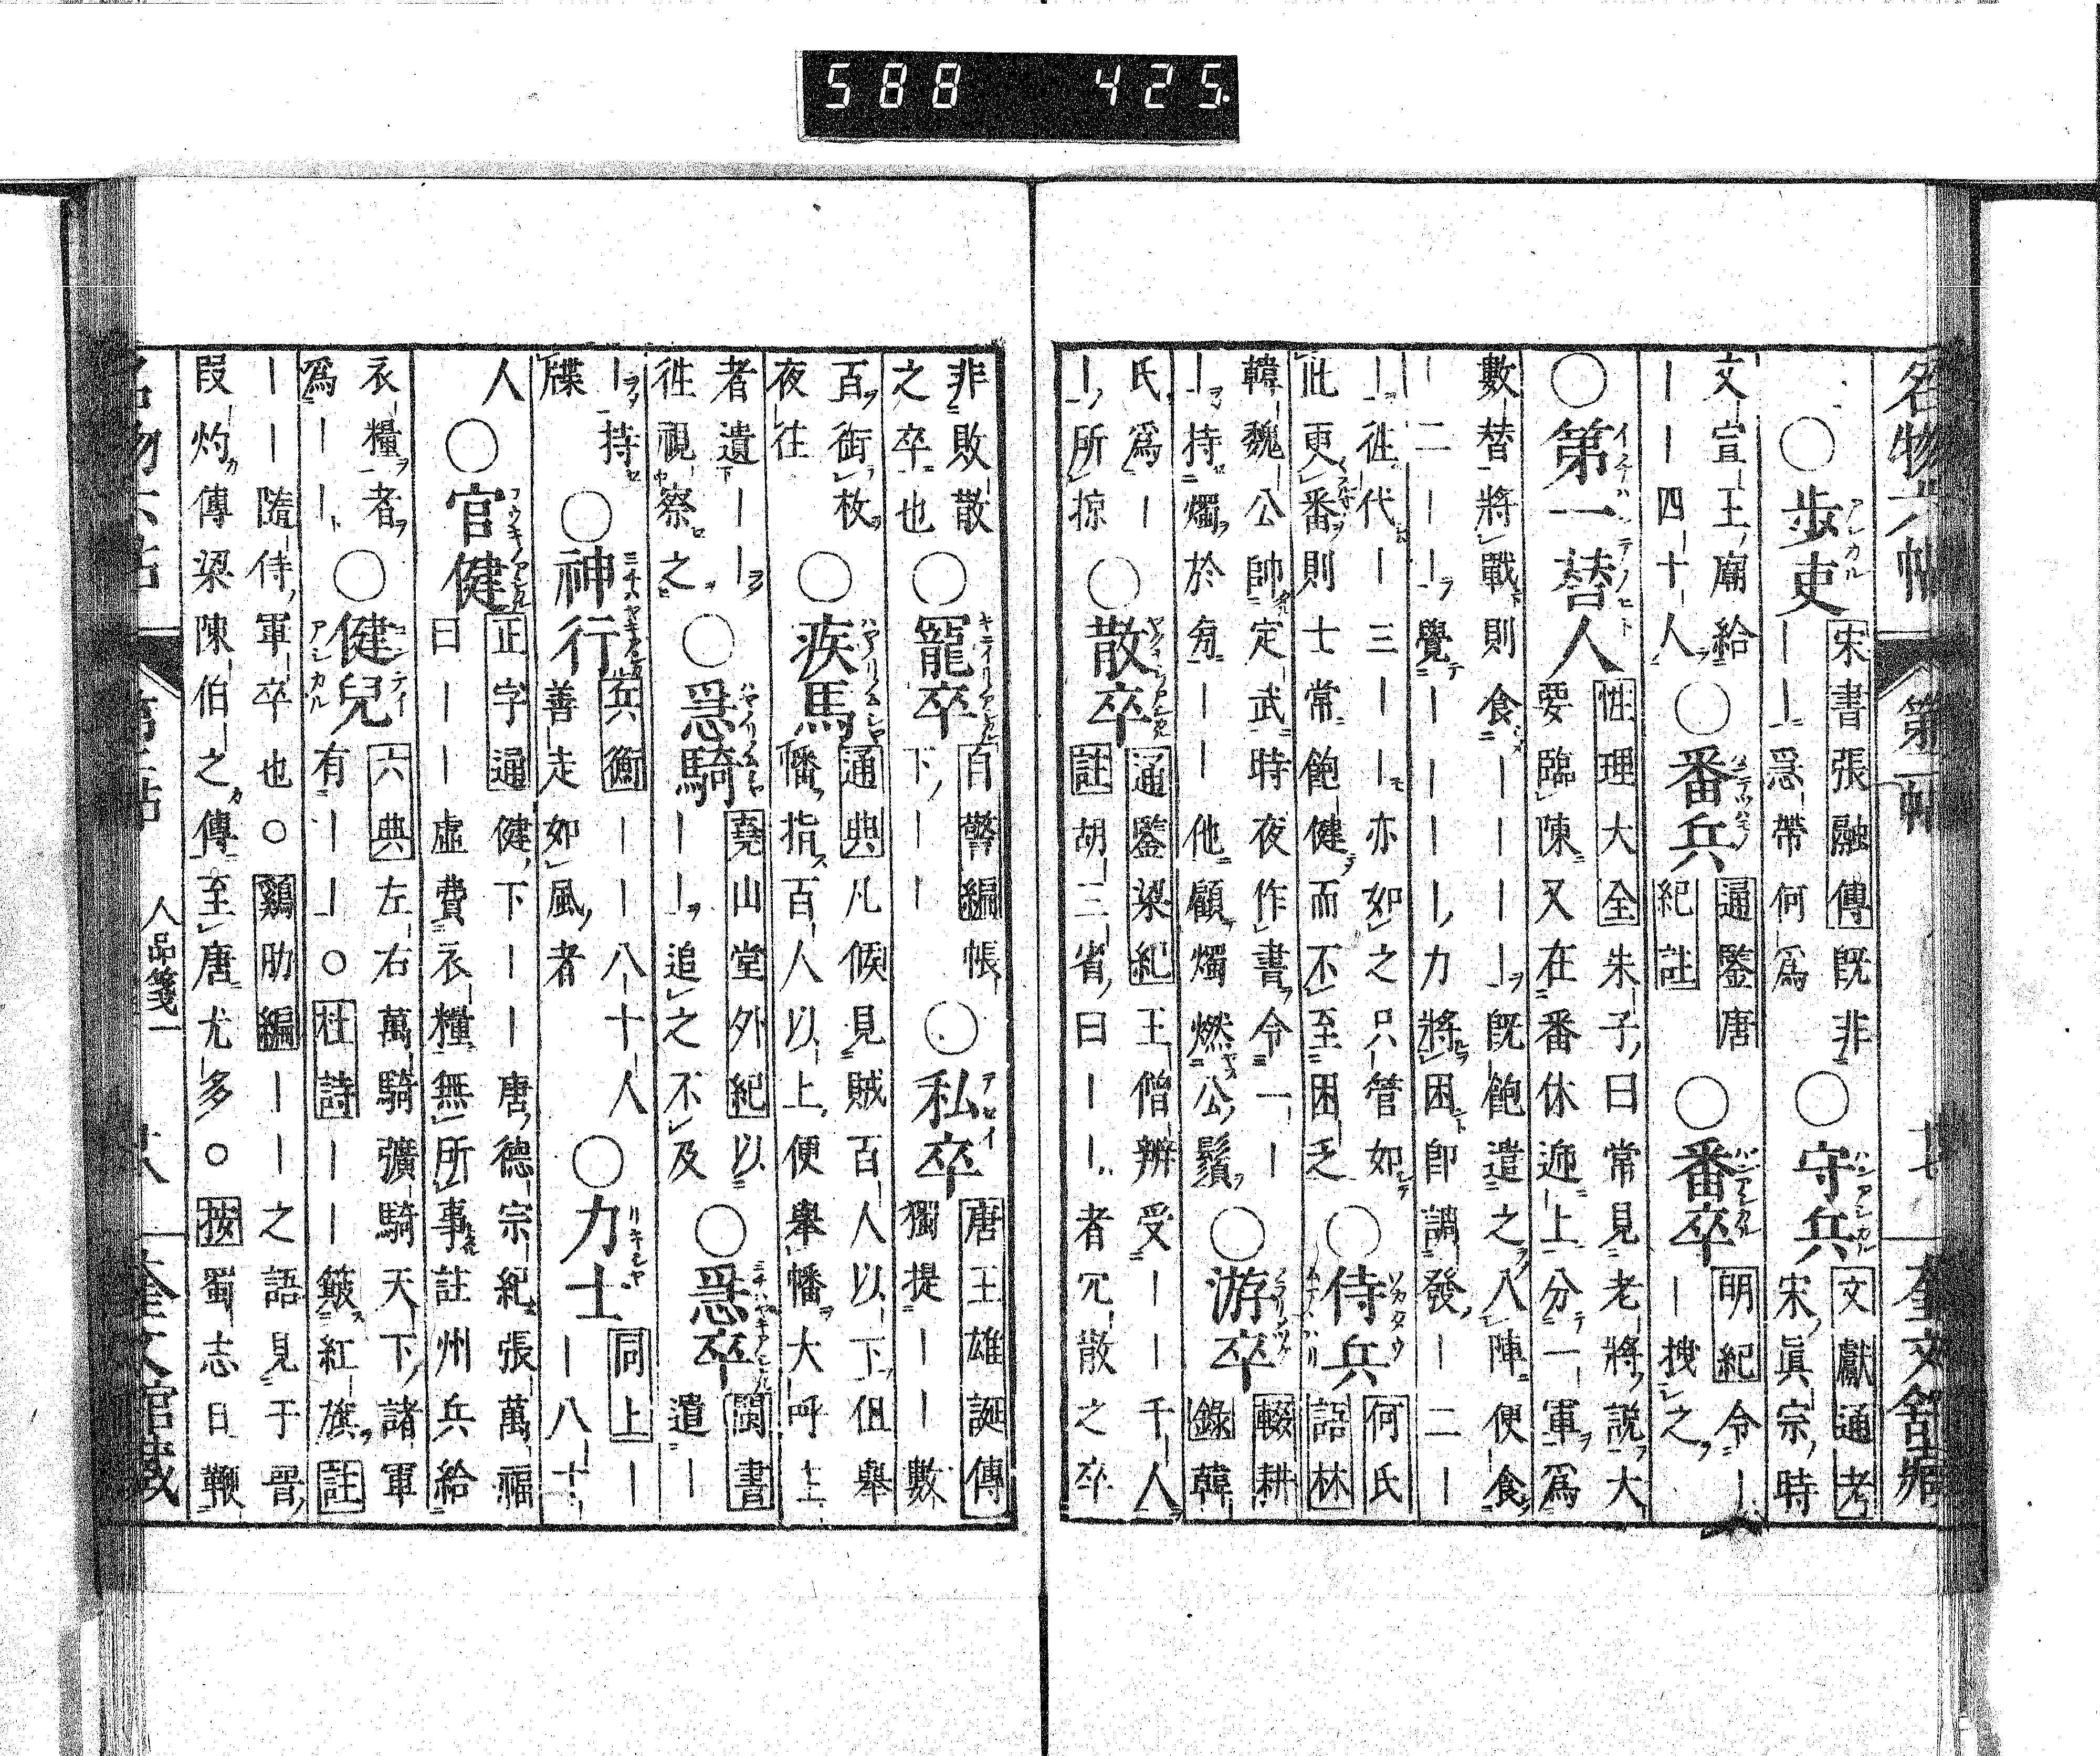 名物六帖 第二帖 十七 奎文舘藏
○歩吏 アシカル 宋書張融傳既非
――爲帶何爲
○守兵 バンアシカル 文獻通考
宋眞宗時
文宣王廟給
――四十人
○番兵 通鑒唐
紀註
○番卒 バンアシカル 明紀令―
―搜之
○第一替人 イチバンテノヒト 性理大全朱子曰常見老將説大
要臨陳又在番休迎上分一軍爲
數替將戰則食――――既飽遣之入陣便食
―二――覺―――――力將困卽調發―二―
―徃代―三――亦如之只管如
此更番則士常飽健而不至困乏
○侍兵 何氏
語林
韓魏公帥定武時夜作書令一―
―持燭於旁――他顧燭燃公鬚
○游卒 輟耕
錄韓
氏爲―
―所掠
○散卒 通鑒梁紀王僧辨受――千人
註胡三省曰――者冗散之卒
非敗散
之卒也
○寵卒 百警編帳
下――
○私卒 唐王雄誕傳
獨提――數
百銜枚
夜往
○疾馬 通典凡候見賊百人以下但舉
幡指百人以上便舉幡大呼上
者遣――
徃視察之
○急騎 堯山堂外紀以
――追之不及
○急卒 閩書
遣―
―持
牒
○神行 兵衡――八十人
善走如風者
○力士 同上―
―八十
人
○官健 正字通健下――唐德宗紀張萬福
曰――虛費衣糧無所事註州兵給
衣糧者
爲――
○健兒 アシカル 六典左右萬騎彍騎天下諸軍
有――○杜詩――簸紅旗註
――隨侍軍卒也○鷄肋編――之語見于晋
段灼傳梁陳伯之傳至唐尤多○按蜀志曰鞭
人品箋一